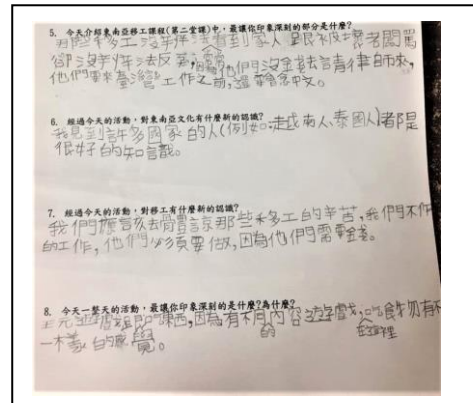 5. 今天介紹東南亞移工課程(第二堂課)中，最讓你印象深刻的部分是什麼?
那些移工沒辦法看到家人跟被壞老闆罵
卻沒辦法反駁，因為他們沒金錢去請律師來，
他們要來臺灣工作之前，還要會唸中文。
6. 經過今天的活動，對東南亞文化有什麼新的認識?
我見到許多國家的人(例如:越南人、泰國人)都是
很好的知識。
7. 經過今天的活動，對移工有什麼新的認識?
我們應該去體諒那些移工的辛苦，我們不作
的工作，他們必須要做，因為他們需要錢。
8. 今天一整天的活動，最讓你印象深刻的是什麼?為什麼?
玩遊戲跟吃東西，因為有不同的內容遊戲，吃食物有不
一樣的感覺。